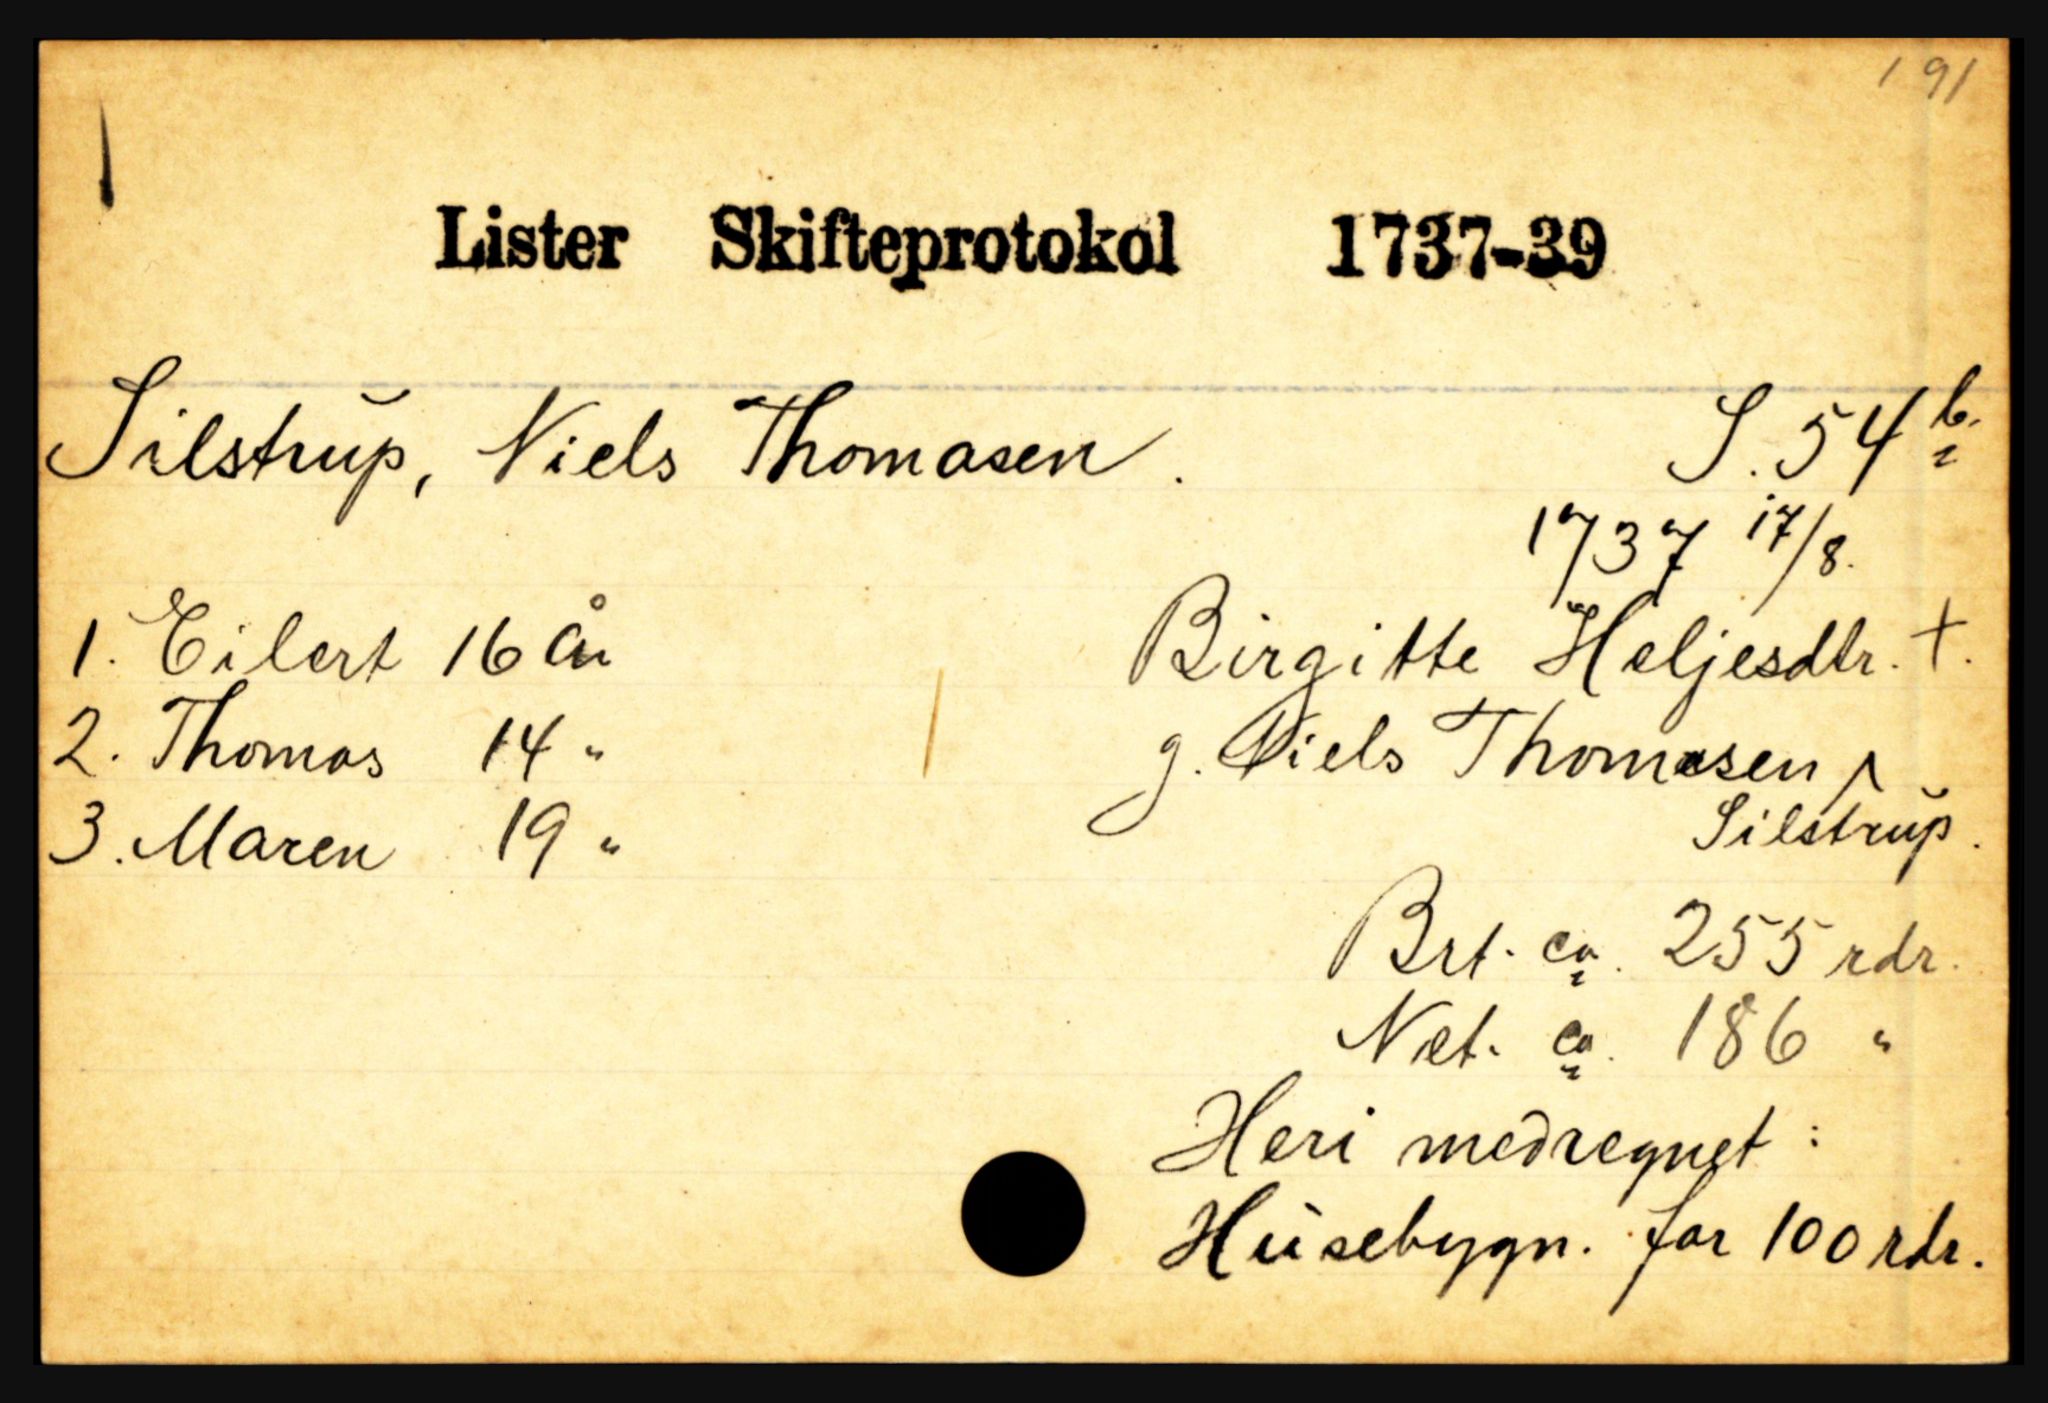 191
Lister Skifteprotokol 1737-39
Silstrup, Niels Thomasen. S. 54 b.
1737 17/8.
1. Eilert 16 År
2. Thomas 14 "
3. Maren 19 "
Birgitte Heljesdtr. +.
g. Niels Thomasen
Silstrup.
Brt. ca. 255 rdr.
Net. ca. 186 "
Heri medregnet:
Husebygn. for 100 rdr.